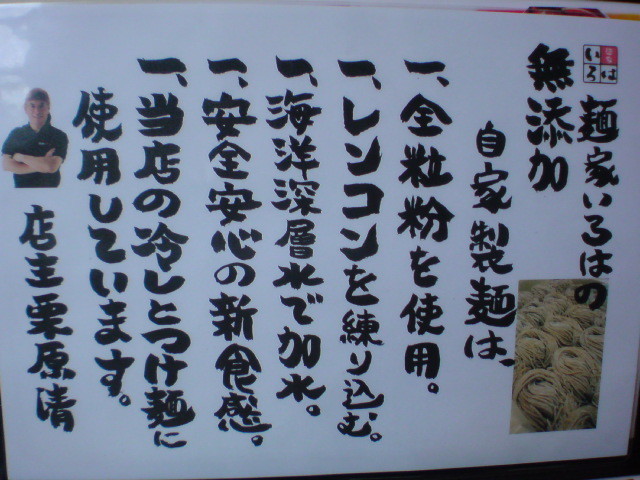 麺家いろはの
無添加
自家製麺は、
一、全粒粉を使用。
一、レンコンを練り込む。
一、海洋深層水で加水。
一、安全安心の新食感。
一、当店の冷しとつけ麺に
使用しています。
店主栗原清